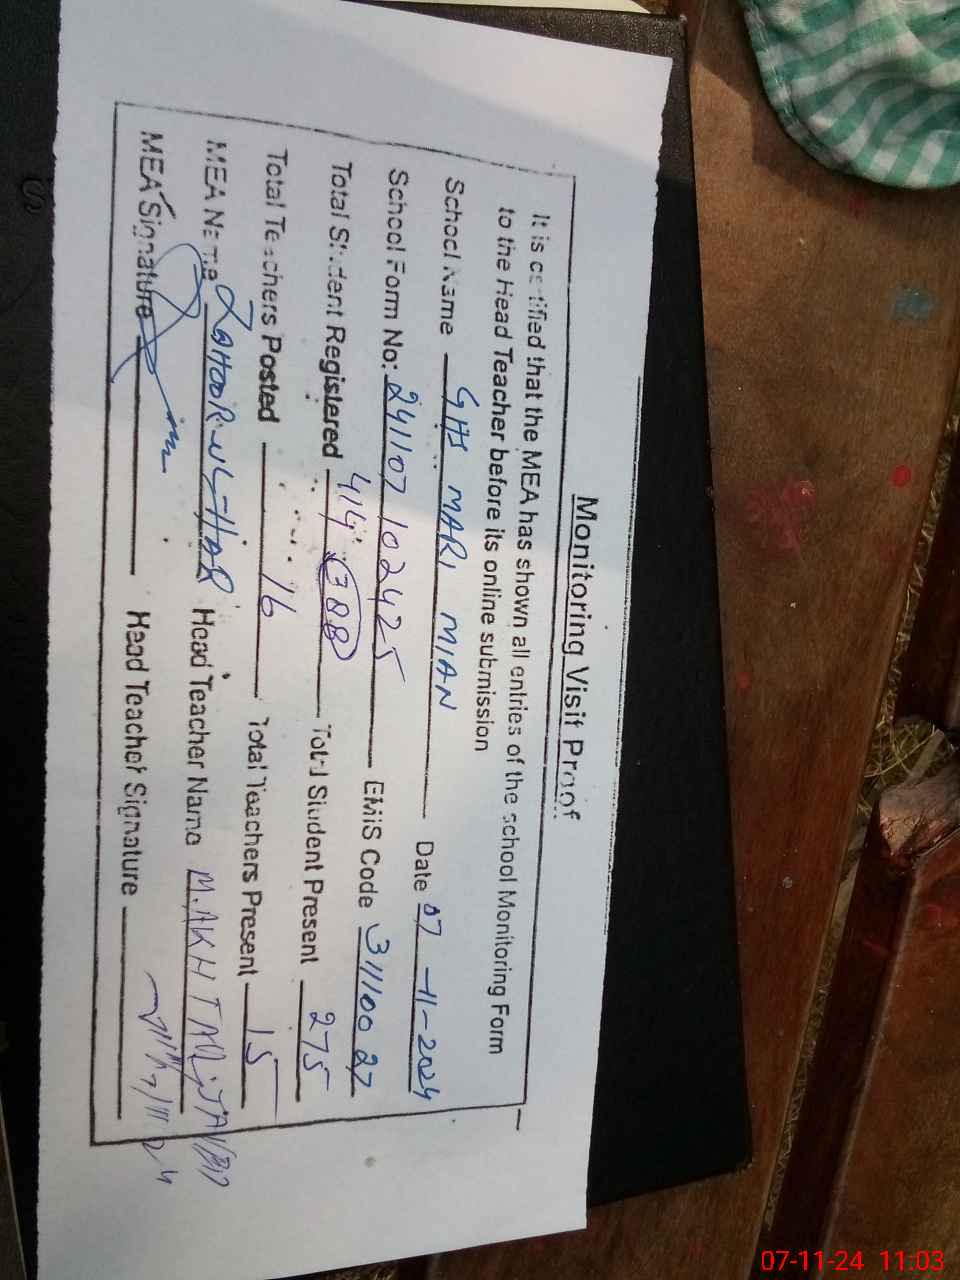 Monitoring Visit Proof
It is certified that the MEA has shown all entries of the school Monitoring Form
to the Head Teacher before its online submission
School Name GHS MARI MIAN Date 07-11-2024
School Form No: 241107102425 EMIS Code 31110027
Total Student Registered 414 388 Total Student Present 275
Total Teachers Posted 16 Total Teachers Present 15
MEA Name ZAHOOR-UL-HAR Head Teacher Name M. AKHTAR JAVED
MEA Signature Head Teacher Signature
7/11/24
07-11-24 11:03